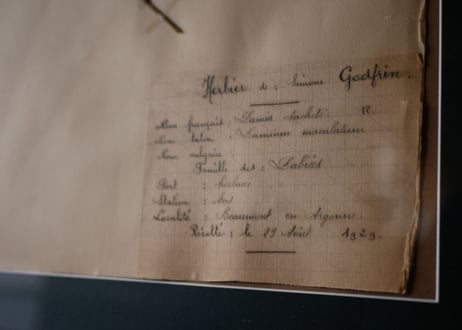 Herbier de : Simone Godfrin.
Nom français : Lamier tacheté. R.
Nom latin : Lamium maculatum
Nom vulgaire
Famille des : Labiées
Port : herbacé
Station : bois
Localité : Beaumont en Argonne.
Récolté : le 29 Août 1929.